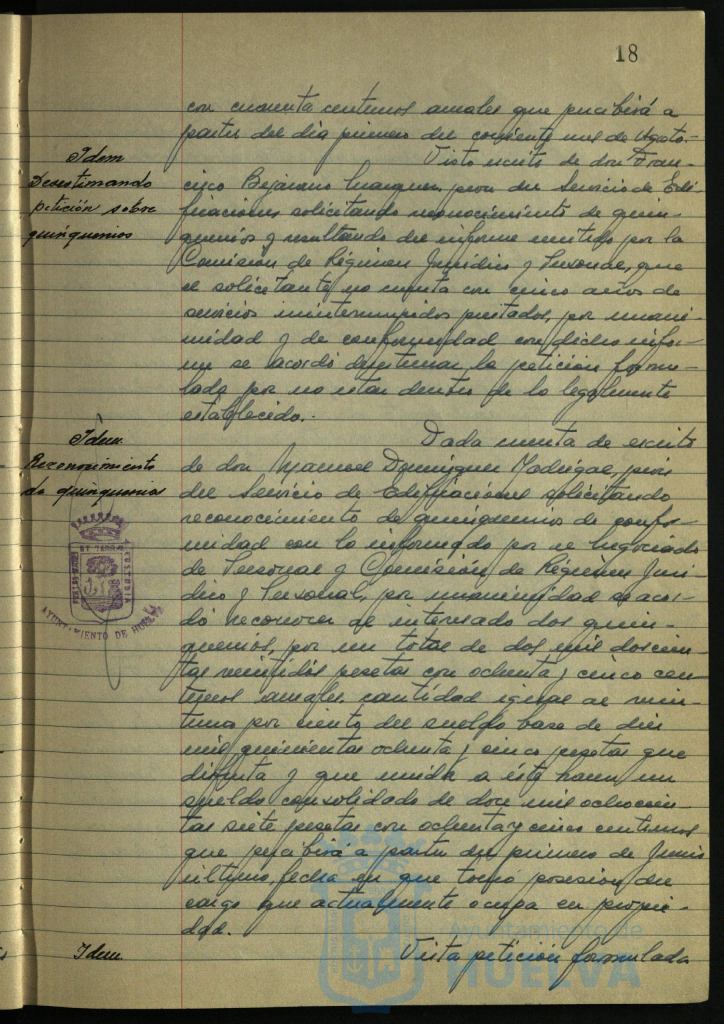 18
con cincuenta centimos anuales que percibirá a
partir del dia primero del corriente mes de Agosto.
Idem
Desestimando
petición sobre
quinquenios
Visto escrito de don Fran-
cisco Bejarano peon del Servicio de Edi-
ficaciones solicitando reconocimiento de quin-
quenios y resultando del informe emitido por la
Comisión de Régimen Juridico y Personal, que
el solicitante no cuenta con cinco años de
servicios ininterrumpidos prestados, por unani-
midad y de conformidad con dicho infor-
me se acordó desestimar la petición formu-
lada por no estar dentro de lo legalmente
establecido.
Idem
Reconocimiento
de quinquenios
Dada cuenta de escrito
de don Manuel Dominguez Madrigal, peón
del Servicio de Edificaciones solicitando
reconocimiento de quinquenios de confor-
midad con lo informado por el Negociado
de Personal y Comisión de Régimen Juri-
dico y Personal, por unanimidad se acor-
dó reconocer al interesado dos quin-
quenios, por un total de dos mil doscien-
tas veintidós pesetas con ochenta y cinco cen-
timos anuales, cantidad igual al vein-
tiuno por ciento del sueldo base de diez
mil quinientas ochenta y cinco pesetas que
disfruta y que unida a éste hacen un
sueldo consolidado de doce mil ochocien-
tas siete pesetas con ochenta y cinco centimos
que percibirá a partir del primero de Junio
último, fecha en que tomó posesión del
cargo que actualmente ocupa en propie-
dad.
Idem
Vista petición formulada
AYUNTAMIENTO DE HUELVA
Ayuntamiento de
HUELVA